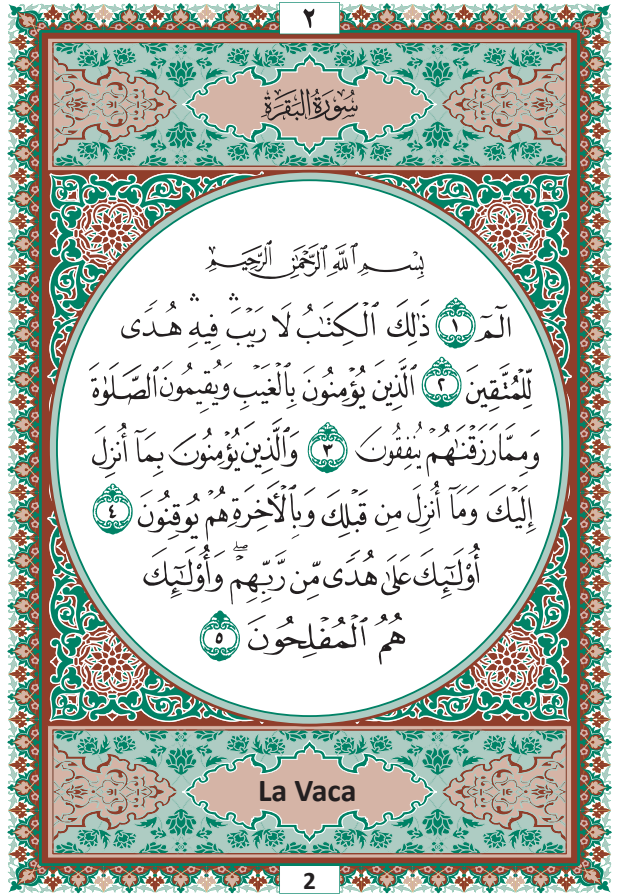 ٢
سُورَةُ البَقَرَةِ
بِسْمِ ٱللَّهِ ٱلرَّحْمَٰنِ ٱلرَّحِيمِ
الٓمٓ ١ ذَٰلِكَ ٱلْكِتَٰبُ لَا رَيْبَ ۛ فِيهِ ۛ هُدًى
لِّلْمُتَّقِينَ ٢ ٱلَّذِينَ يُؤْمِنُونَ بِٱلْغَيْبِ وَيُقِيمُونَ ٱلصَّلَوٰةَ
وَمِمَّا رَزَقْنَٰهُمْ يُنفِقُونَ ٣ وَٱلَّذِينَ يُؤْمِنُونَ بِمَآ أُنزِلَ
إِلَيْكَ وَمَآ أُنزِلَ مِن قَبْلِكَ وَبِٱلْأَخِرَةِ هُمْ يُوقِنُونَ ٤
أُو۟لَٰٓئِكَ عَلَىٰ هُدًى مِّن رَّبِّهِمْ ۖ وَأُو۟لَٰٓئِكَ
هُمُ ٱلْمُفْلِحُونَ ٥
La Vaca
2